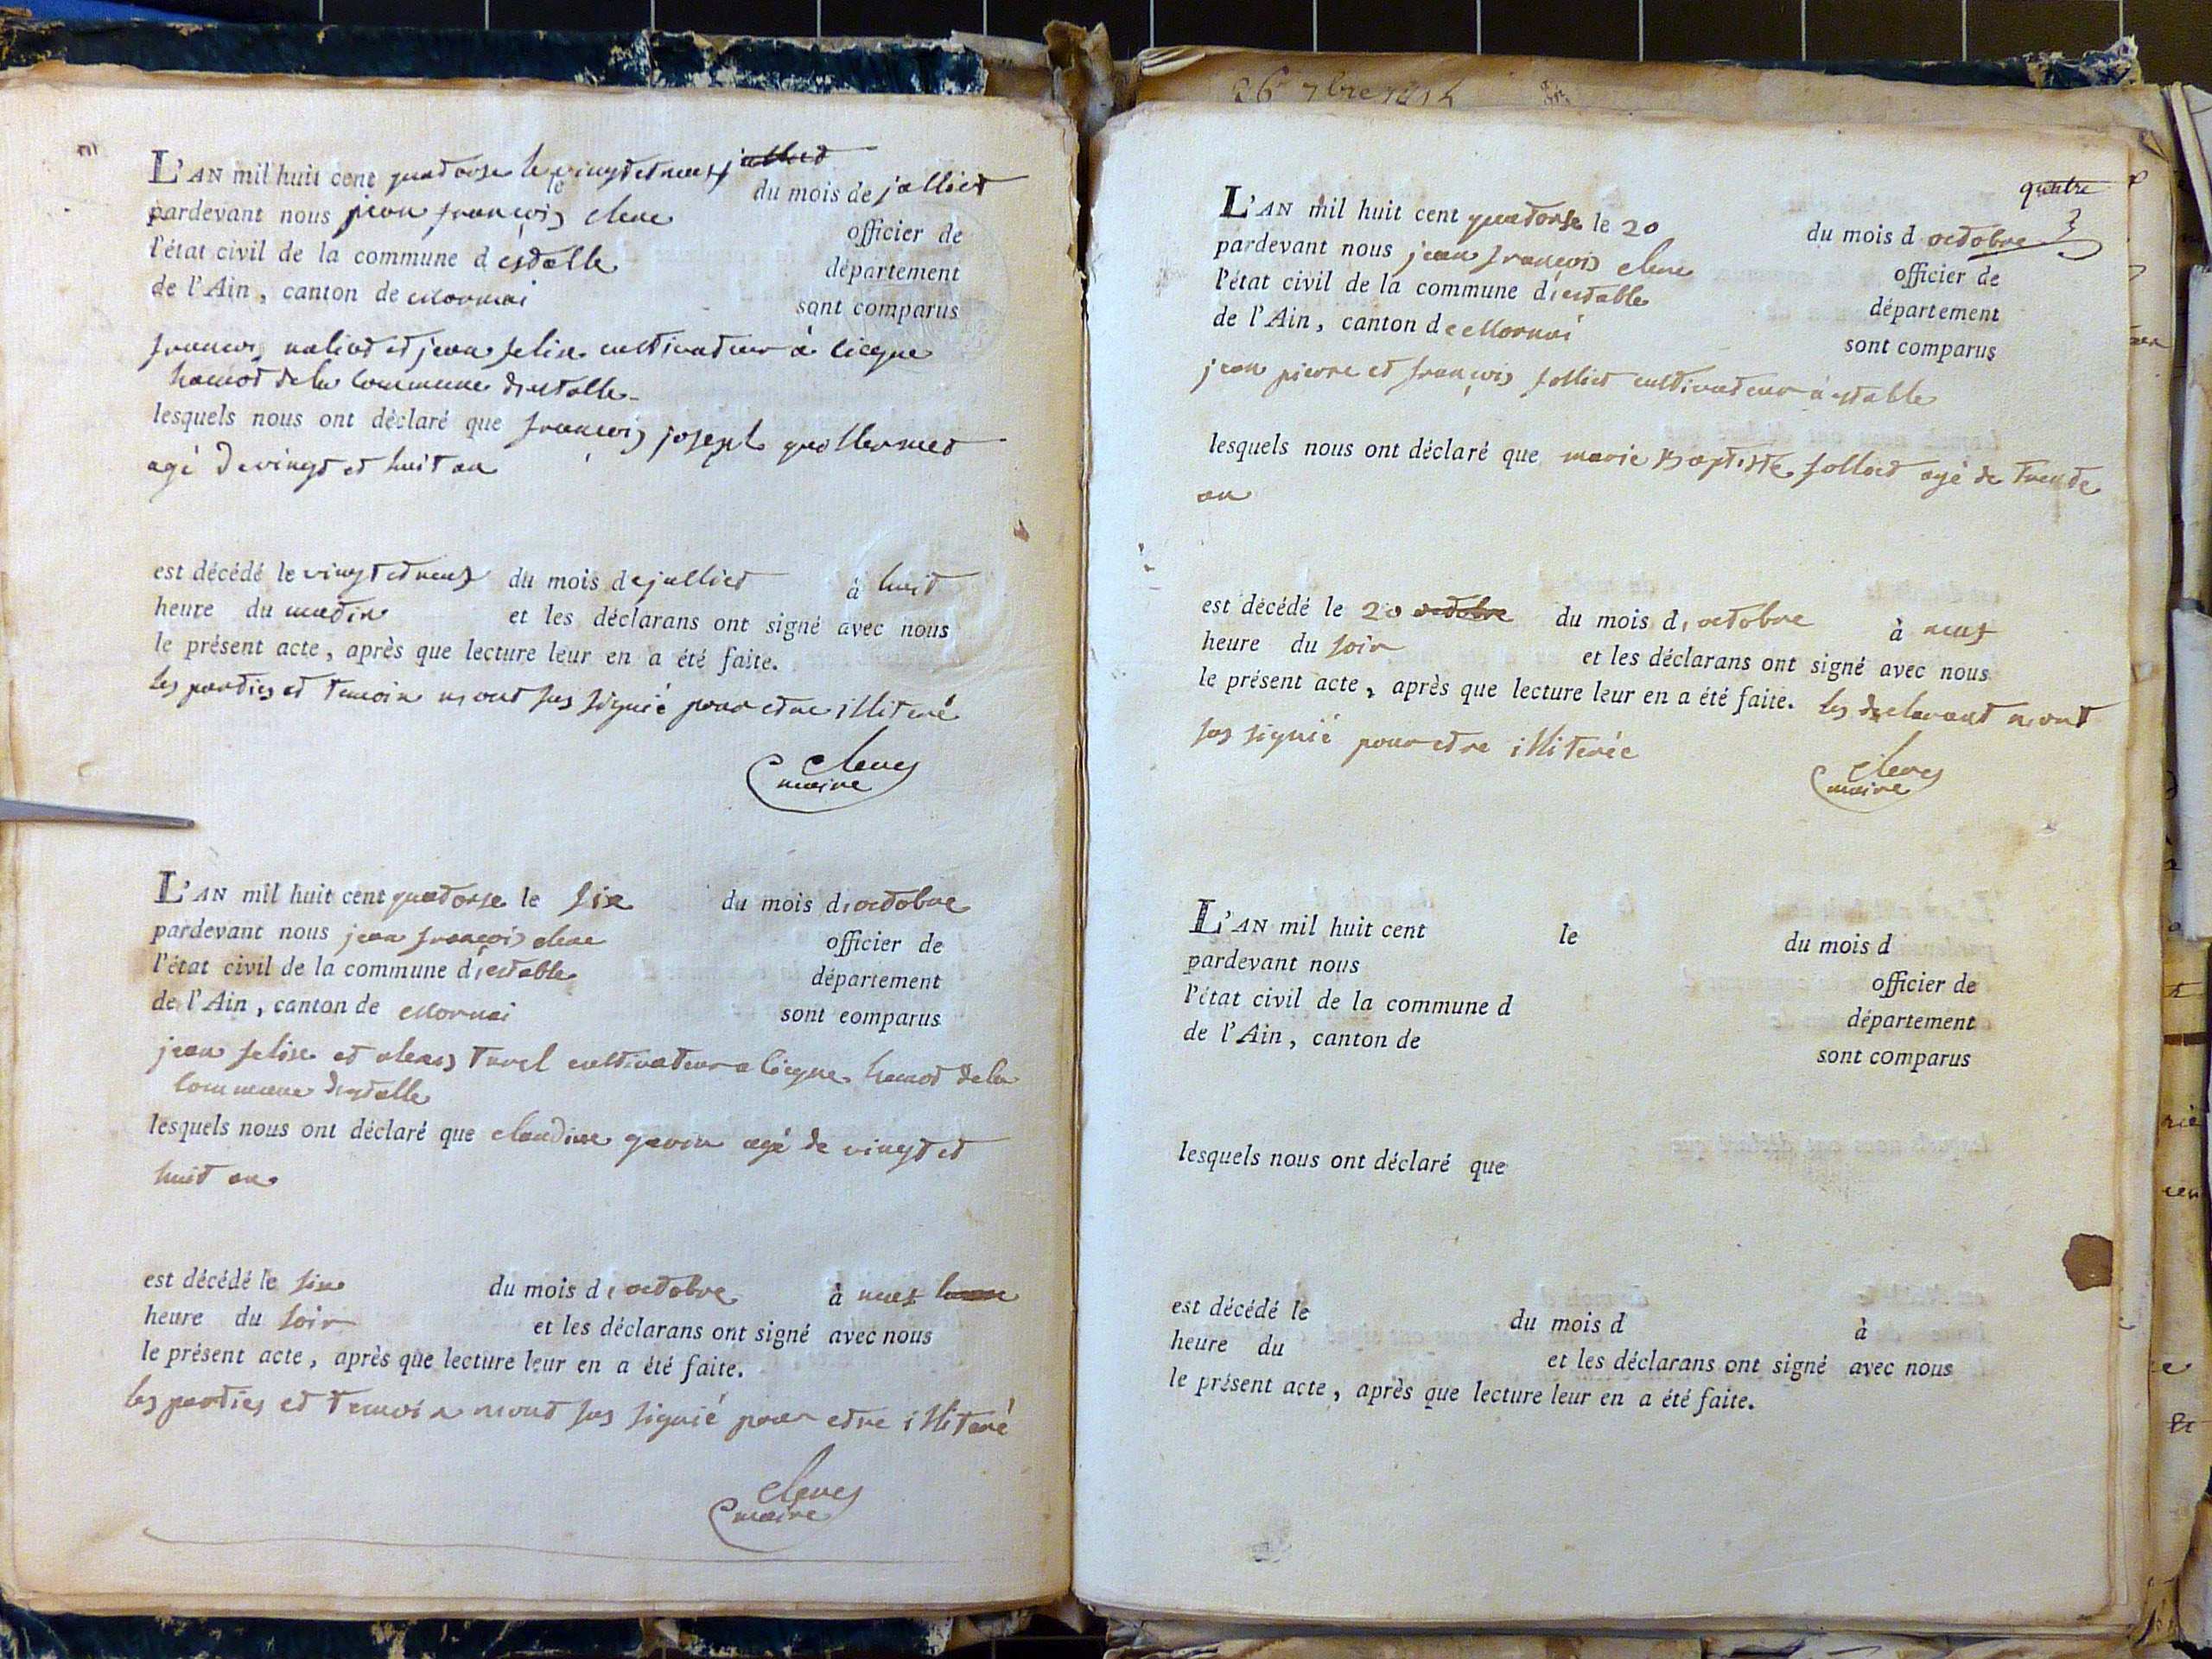 L'AN mil huit cent quatorse le vingt et neuf jullied du mois de jolliet
pardevant nous jean françois clerc officier de
l'état civil de la commune d estable département
de l'Ain, canton de Mornai sont comparus
françois et jean felise cultivateur à
hamot de la commune d'estable
lesquels nous ont déclaré que françois joseph guillermet
agé de vingt et huit an
est décédé le vingt et neuf du mois de julliet à huit
heure du matin et les déclarans ont signé avec nous
le présent acte, après que lecture leur en a été faite.
les parties et temoin n'ont pas signié pour etre illiteré
clerc
maire
L'AN mil huit cent quatorse le six du mois d'octobre
pardevant nous jean françois clerc officier de
l'état civil de la commune d'estable département
de l'Ain, canton de Mornai sont comparus
jean felise et turel cultivateur a hamot de la
commune d'estable
lesquels nous ont déclaré que claudine gavin agé de vingt et
huit an
est décédé le six du mois d'octobre à neuf heure
heure du soir et les déclarans ont signé avec nous
le présent acte, après que lecture leur en a été faite.
les parties et temoin n'ont pas signié pour etre illiteré
clerc
maire
26 7bre 1814
quatre
3
L'AN mil huit cent quatorse le 20 du mois d octobre
pardevant nous jean françois clerc officier de
l'état civil de la commune d'estable département
de l'Ain, canton de Mornai sont comparus
jean pierre et françois folliet cultivateur à estable
lesquels nous ont déclaré que marie Baptiste folliet agé de trente
an
est décédé le 20 octobre du mois d'octobre à neuf
heure du soir et les déclarans ont signé avec nous
le présent acte, après que lecture leur en a été faite. les declarant n'ont
pas signié pour etre illiterée
clerc
maire
L'AN mil huit cent le du mois d
pardevant nous officier de
l'état civil de la commune d département
de l'Ain, canton de sont comparus
lesquels nous ont déclaré que
est décédé le du mois d à
heure du et les déclarans ont signé avec nous
le présent acte, après que lecture leur en a été faite.